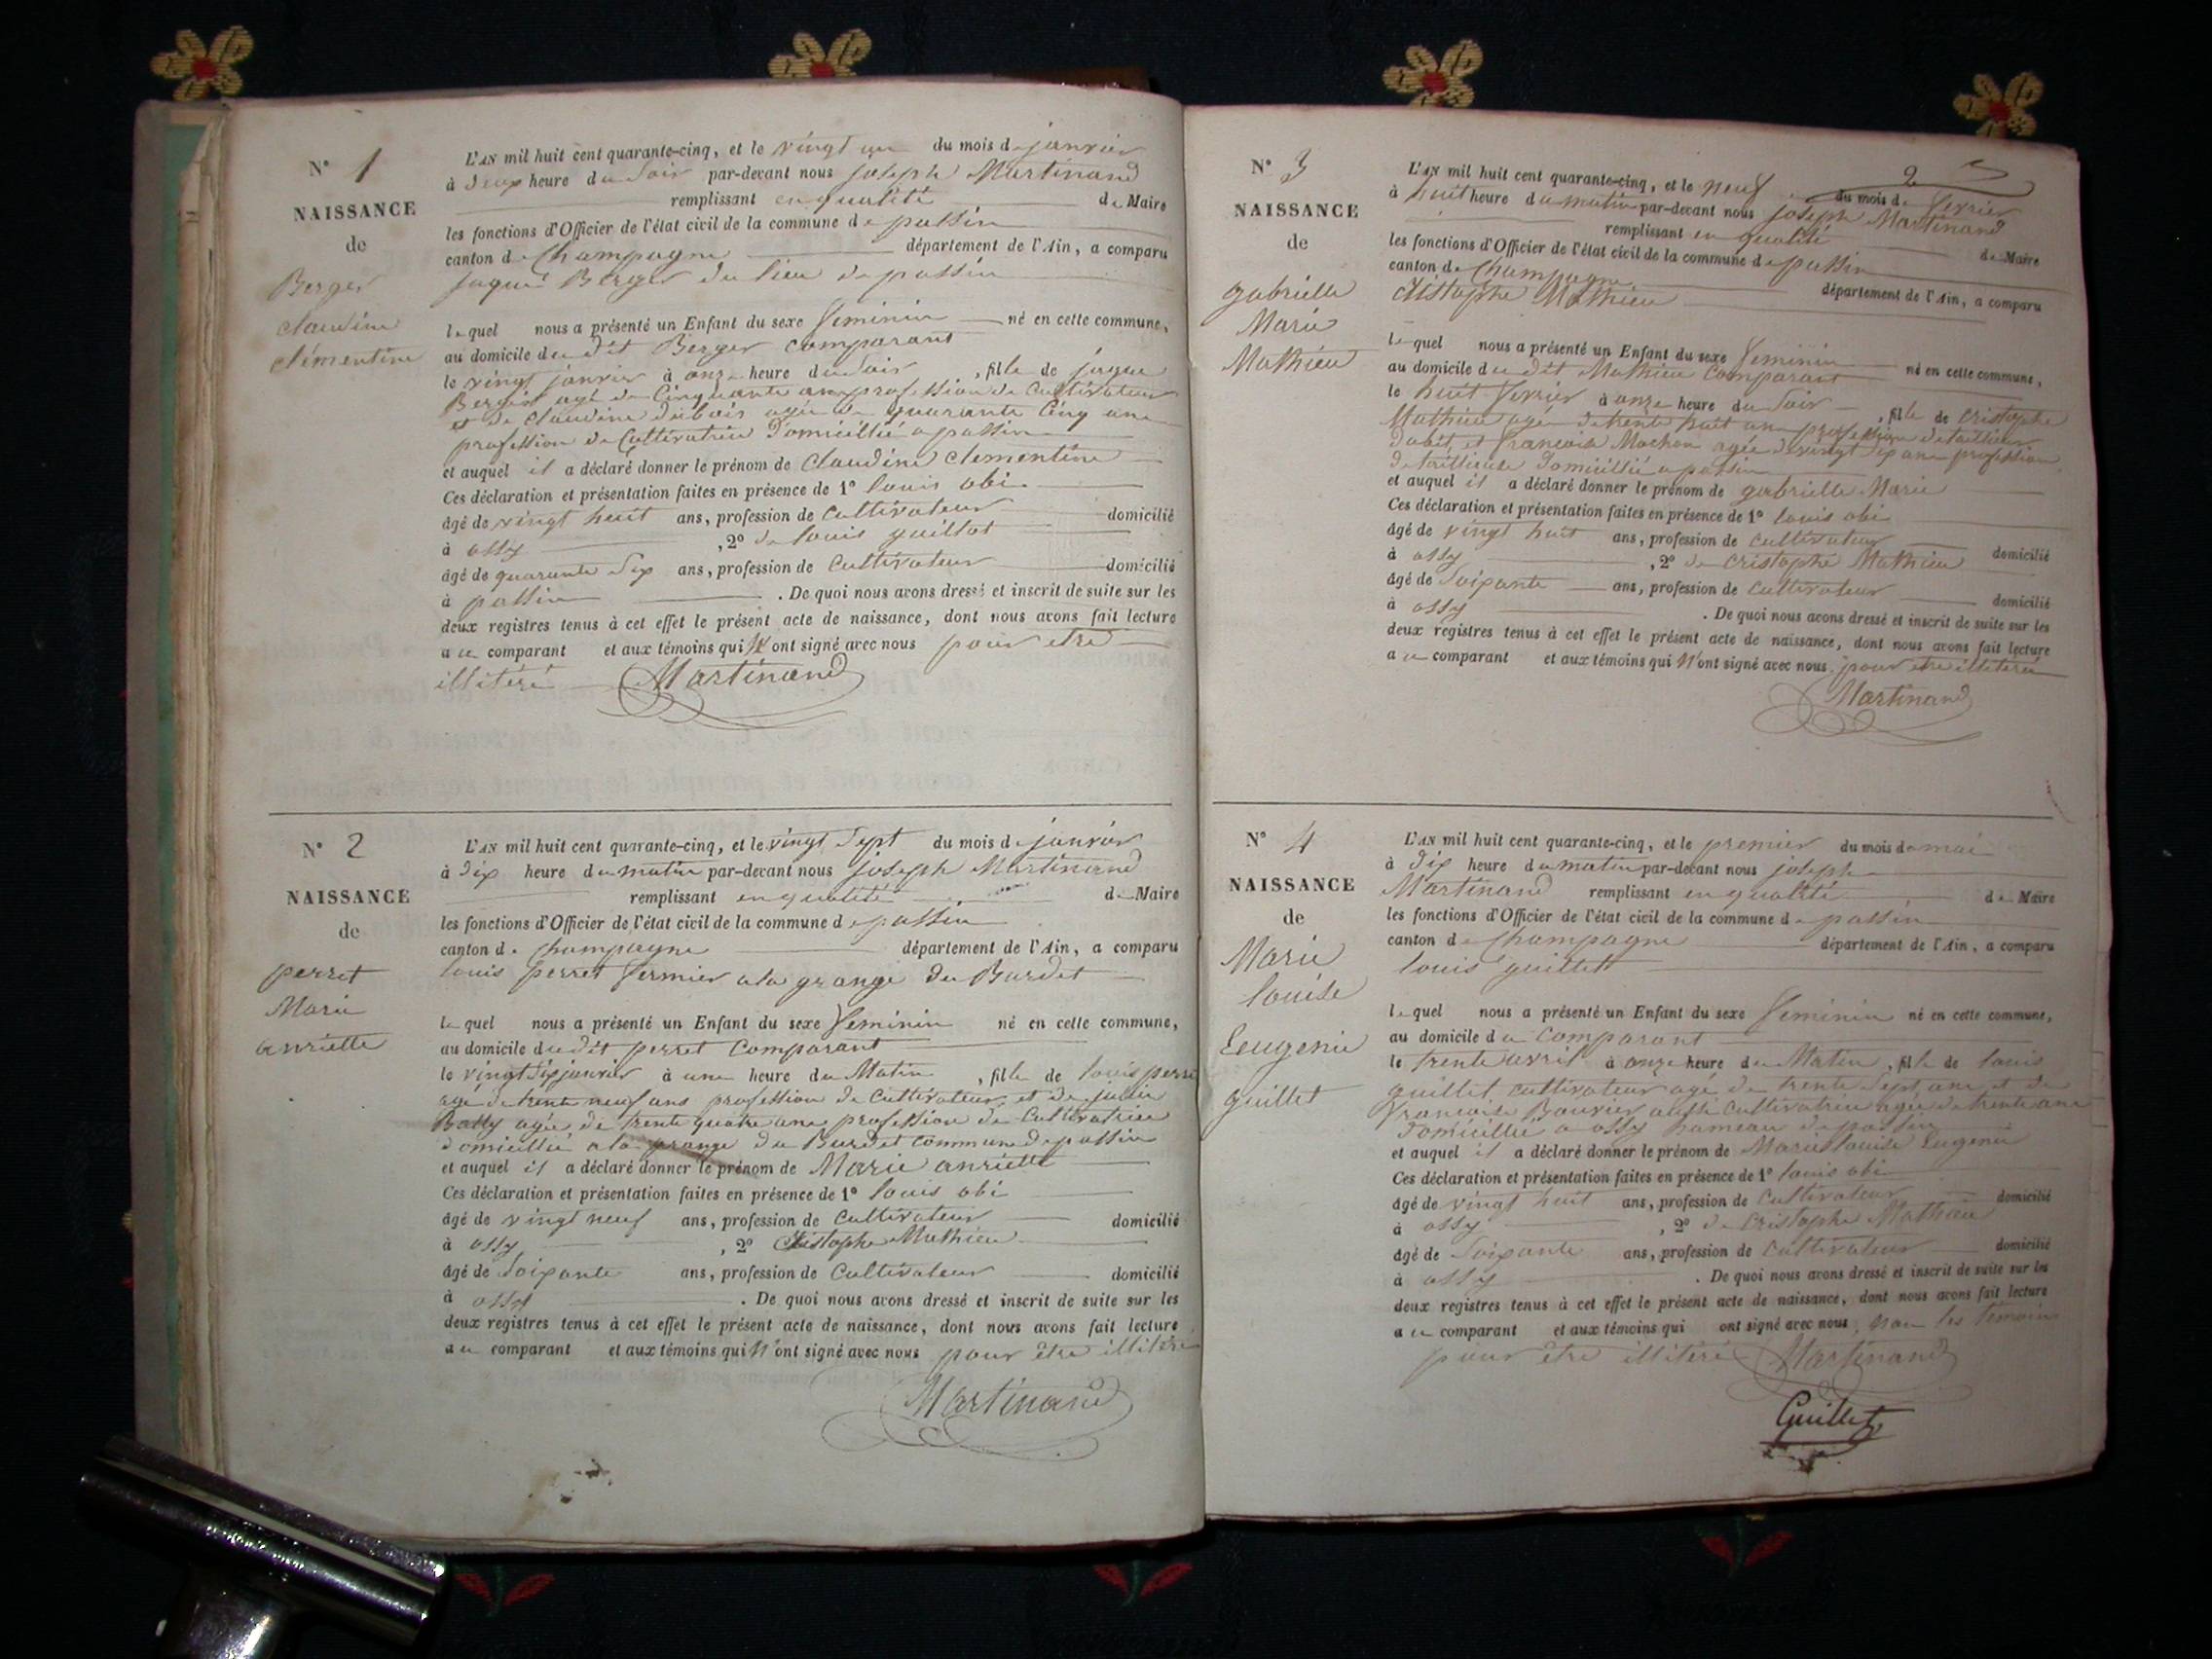 N° 1
NAISSANCE
de
Berger
claudine
clémentine
L'AN mil huit cent quarante-cinq, et le vingt un du mois de janvier
à deux heure du soir par-devant nous joseph Martinand
remplissant en qualité de Maire
les fonctions d'Officier de l'état civil de la commune de passin
canton de Champagne département de l'Ain, a comparu
jaque Berger du lieu de passin
lequel nous a présenté un Enfant du sexe feminin né en cette commune,
au domicile du dit Berger comparant
le vingt janvier à onze heure du soir, fille de jaque
Berger agé de Cinquante ans profession de Cultivateur
et de claudine dubois agée de quarante Cinq ans
profession de Cultivatrice Domicillié a passin
et auquel il a déclaré donner le prénom de claudine clementine
Ces déclaration et présentation faites en présence de 1° louis obi
âgé de vingt huit ans, profession de Cultivateur domicilié
à ossy, 2° de louis guillot
âgé de quarante six ans, profession de Cultivateur domicilié
à passin. De quoi nous avons dressé et inscrit de suite sur les
deux registres tenus à cet effet le présent acte de naissance, dont nous avons fait lecture
au comparant et aux témoins qui N'ont signé avec nous pour etre
illitéré Martinand
N° 2
NAISSANCE
de
perret
Marie
anriette
L'AN mil huit cent quarante-cinq, et le vingt sept du mois de janvier
à dix heure du matin par-devant nous joseph Martinand
remplissant en qualité de Maire
les fonctions d'Officier de l'état civil de la commune de passin
canton de Champagne département de l'Ain, a comparu
louis perret fermier a la grange du Burdet
lequel nous a présenté un Enfant du sexe feminin né en cette commune,
au domicile du dit perret Comparant
le vingt six janvier à une heure du Matin, fille de louis perret
age de trente neuf ans profession de Cultivateur et de julie
Bally agée de trente quatre ans profession de Cultivatrice
domicillié a la grange du Burdet commune de passin
et auquel il a déclaré donner le prénom de Marie anriette
Ces déclaration et présentation faites en présence de 1° louis obi
âgé de vingt neuf ans, profession de Cultivateur domicilié
à ossy, 2° Cristophe Mathieu
âgé de soixante ans, profession de Cultivateur domicilié
à ossy. De quoi nous avons dressé et inscrit de suite sur les
deux registres tenus à cet effet le présent acte de naissance, dont nous avons fait lecture
au comparant et aux témoins qui N'ont signé avec nous pour être illitéré
Martinand
2
N° 3
NAISSANCE
de
gabrielle
Marie
Mathieu
L'AN mil huit cent quarante-cinq, et le neuf du mois de fevrier
à huit heure du matin par-devant nous joseph Martinand
remplissant en qualité de Maire
les fonctions d'Officier de l'état civil de la commune de passin
canton de Champagne département de l'Ain, a comparu
Cristophe Mathieu
lequel nous a présenté un Enfant du sexe feminin né en cette commune,
au domicile du dit Mathieu Comparant
le huit fevrier à onze heure du soir, fille de cristophe
Mathieu agé de trente huit ans profession de tailleur
d'abit et francoise Mochon agée de vingt six ans profession
de tailleuse Domicillié a passin
et auquel il a déclaré donner le prénom de gabrielle Marie
Ces déclaration et présentation faites en présence de 1° louis obi
âgé de vingt huit ans, profession de Cultivateur
à ossy, 2° de cristophe Mathieu domicilié
âgé de soixante ans, profession de Cultivateur domicilié
à ossy. De quoi nous avons dressé et inscrit de suite sur les
deux registres tenus à cet effet le présent acte de naissance, dont nous avons fait lecture
au comparant et aux témoins qui N'ont signé avec nous pour etre illitéré
Martinand
N° 4
NAISSANCE
de
Marie
louise
Eeugenie
guillet
L'AN mil huit cent quarante-cinq, et le premier du mois de mai
à dix heure du matin par-devant nous joseph
Martinand remplissant en qualité de Maire
les fonctions d'Officier de l'état civil de la commune de passin
canton de Champagne département de l'Ain, a comparu
louis guillet
lequel nous a présenté un Enfant du sexe feminin né en cette commune,
au domicile du Comparant
le trente avril à onze heure du Matin, fille de louis
guillet cultivateur agé de trente sept ans et de
francoise Bouvier aussi cultivatrice agée de trente ans
Domicillié a ossy hameau de passin
et auquel il a déclaré donner le prénom de Marie louise Eugenie
Ces déclaration et présentation faites en présence de 1° louis obi
âgé de vingt huit ans, profession de Cultivateur domicilié
à ossy, 2° de Cristophe Mathieu
âgé de soixante ans, profession de Cultivateur domicilié
à ossy. De quoi nous avons dressé et inscrit de suite sur les
deux registres tenus à cet effet le présent acte de naissance, dont nous avons fait lecture
au comparant et aux témoins qui ont signé avec nous, non les temoins
pour être illitéré Martinand
Guillet